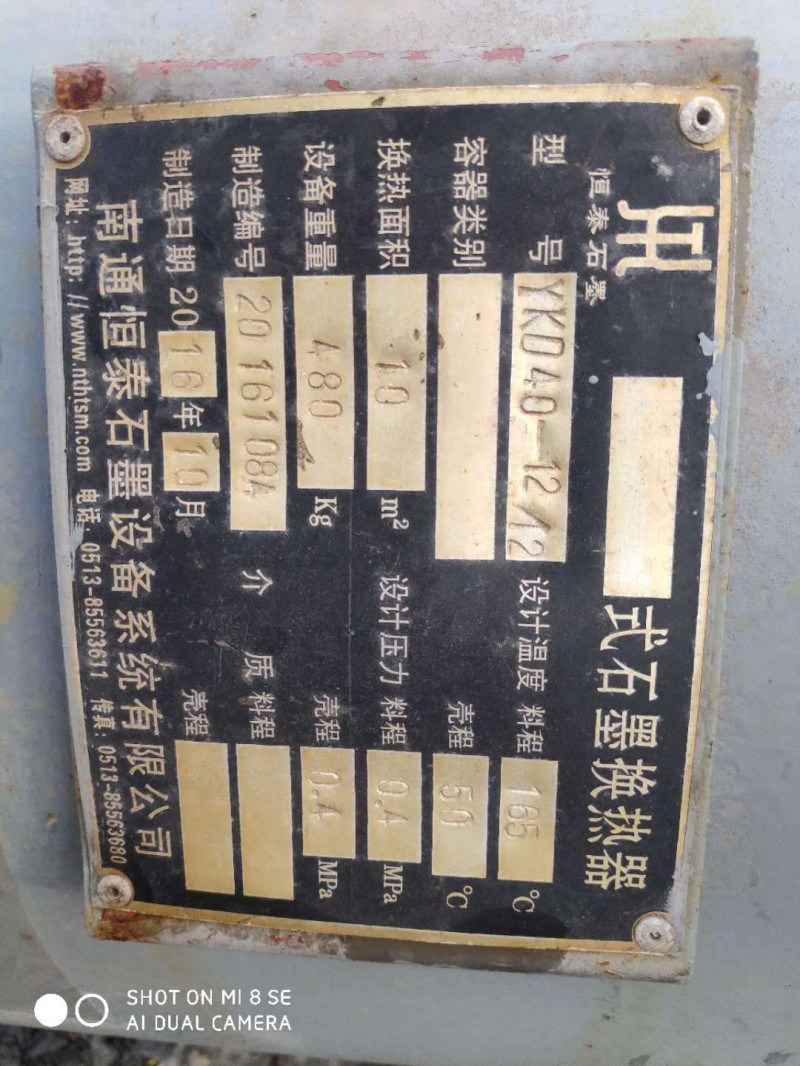 恒泰石墨
式石墨换热器
型号 YKD40-12/12 设计温度 料程 165 ℃
容器类别 壳程 50 ℃
换热面积 10 m² 设计压力 料程 0.4 MPa
设备重量 480 Kg 壳程 0.4 MPa
制造编号 2016108A 介质 料程
制造日期 2016年10月 壳程
南通恒泰石墨设备系统有限公司
网址: http: //www.nthtsm.com 电话: 0513-85563611 传真: 0513-85563680
SHOT ON MI 8 SE
AI DUAL CAMERA